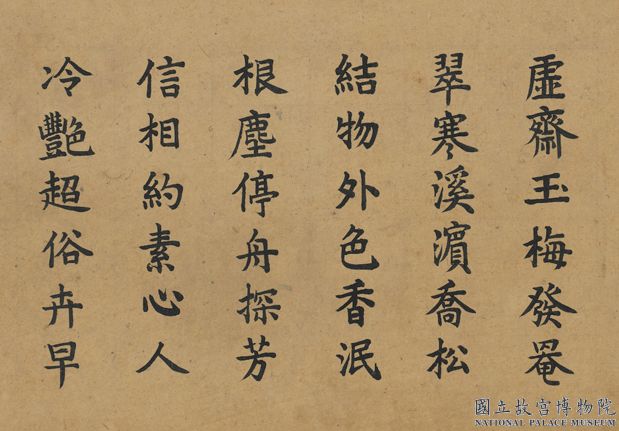 虛齋玉梅發罨
翠寒溪濵喬松
結物外色香泯
根塵停舟探芳
信相約素心人
冷艷超俗卉早
國立故宮博物院
NATIONAL PALACE MUSEUM